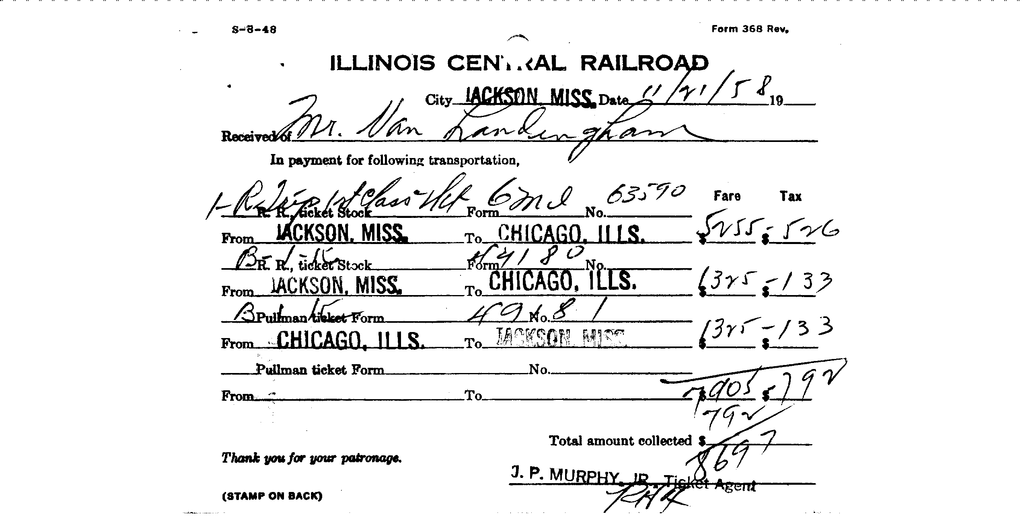 S-8-48 Form 368 Rev.
ILLINOIS CENTRAL RAILROAD
City JACKSON, MISS. Date 11/21/58 19
Received of Mr. Van Landingham
In payment for following transportation,
1- R Trip 1st Class Tkt 6 md 63590 Fare Tax
R. R., ticket Stock Form No.
From JACKSON, MISS. To CHICAGO, ILLS. $ 5255 $ 526
B-1-15 49180
R. R., ticket Stock Form No.
From JACKSON, MISS. To CHICAGO, ILLS. $ 1325 $ 133
B 1 15 49181
Pullman ticket Form No.
From CHICAGO, ILLS. To JACKSON, MISS. $ 1325 $ 133
Pullman ticket Form No.
From To $ 7905 $ 792
792
Total amount collected $ 8697
Thank you for your patronage.
J. P. MURPHY, JR., Ticket Agent
(STAMP ON BACK)